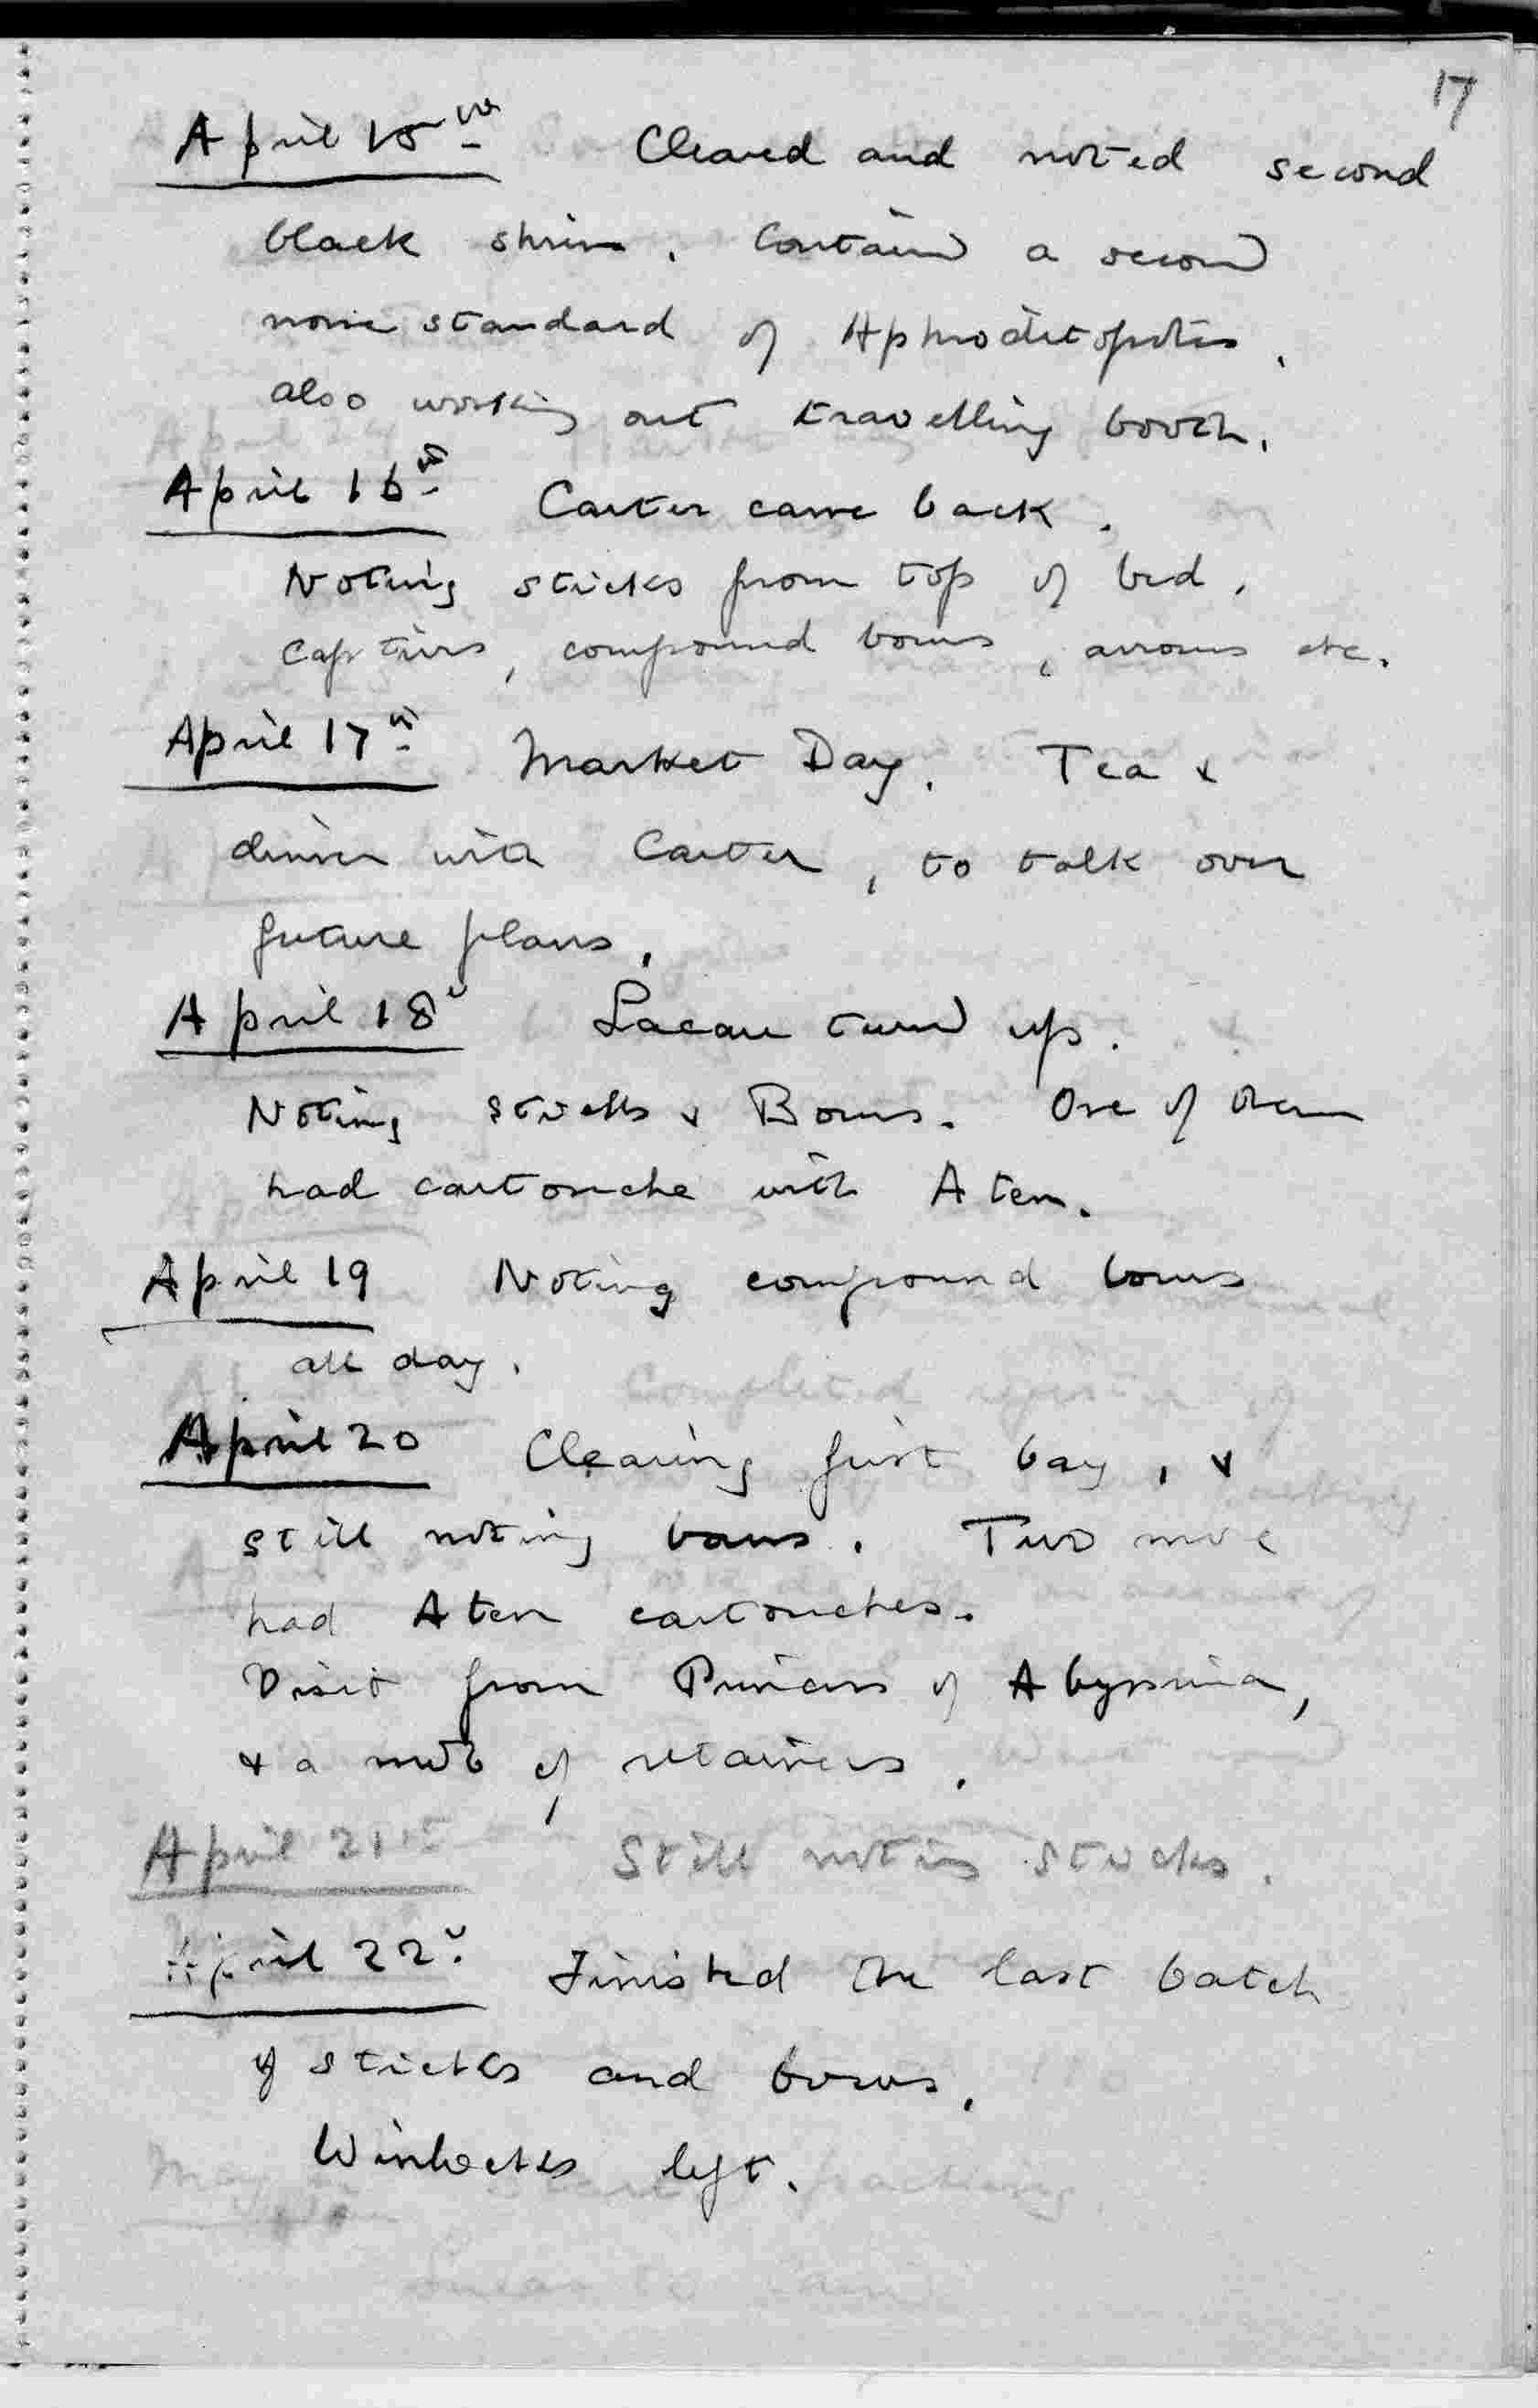 17
April 15th Cleared and noted second
black shrine. Contained a second
nome standard of Aphroditopolis.
also working out travelling booth.
April 16th Carter came back.
Noting sticks from top of bed,
captives, compound bows, arrows etc.
April 17th Market Day. Tea &
dinner with Carter, to talk over
future plans.
April 18th Lacau turned up.
Noting sticks & Bows. One of them
had cartouche with Aten.
April 19 Noting compound bows
all day.
April 20 Clearing first bay, &
still noting bows. Two more
had Aten cartouches.
Visit from Princess of Abyssinia,
& a mob of retainers.
April 21st Still noting sticks.
April 22d Finished the last batch
of sticks and bows.
Winlocks left.